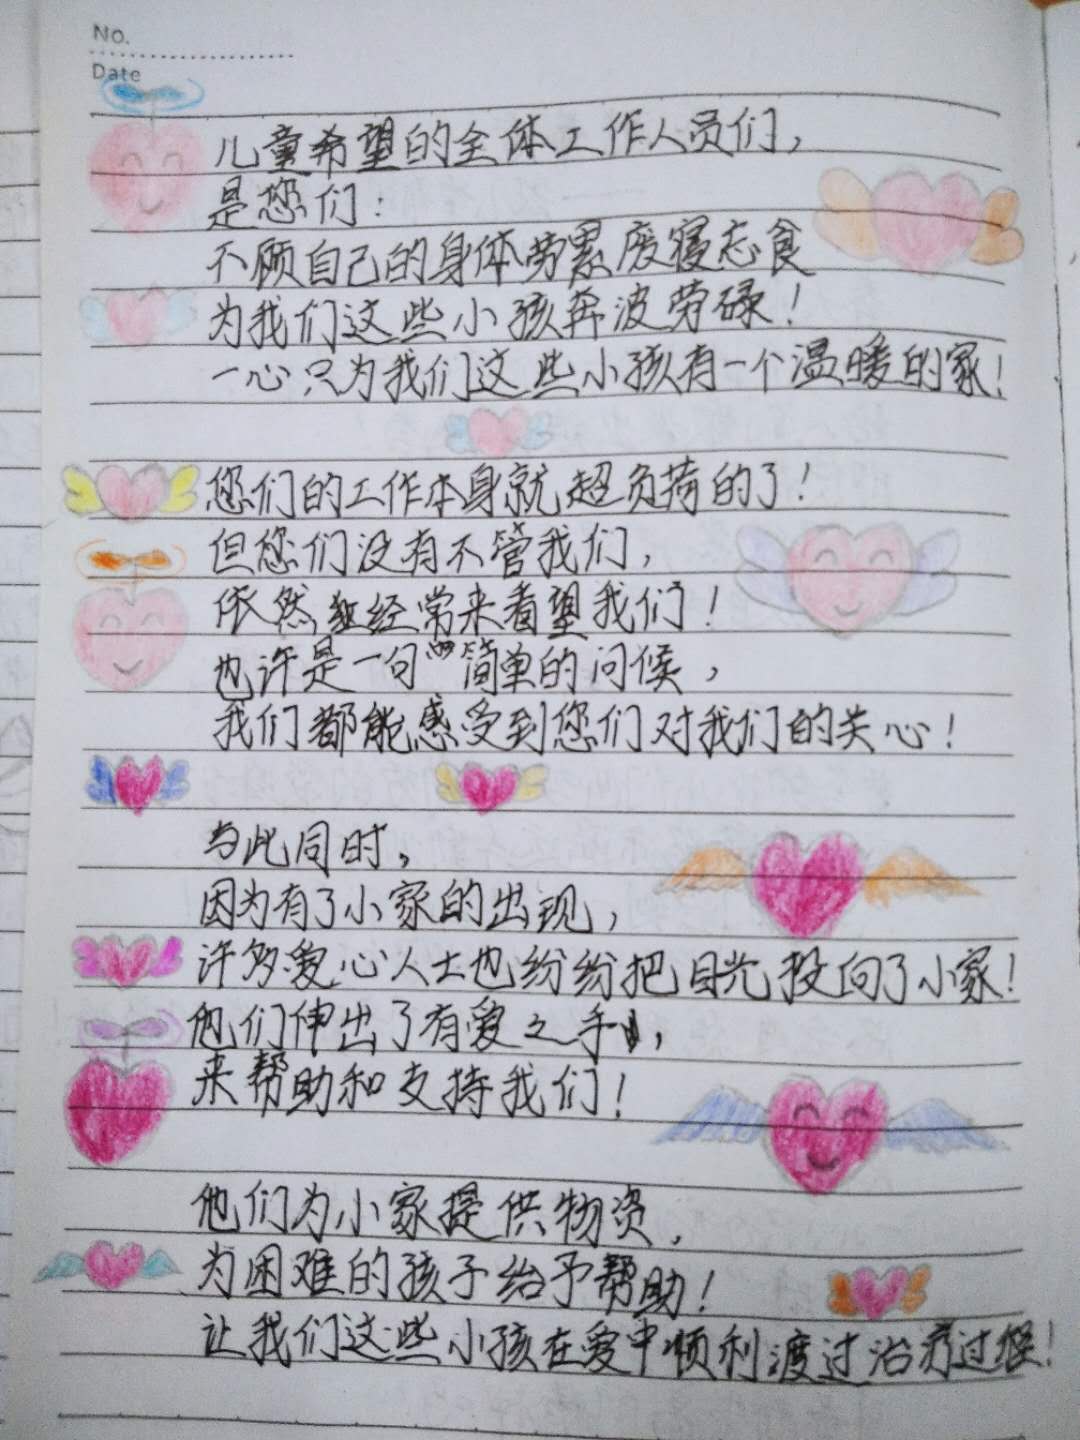 No.
Date
儿童希望的全体工作人员们，
是您们：
不顾自己的身体劳累废寝忘食
为我们这些小孩奔波劳碌！
一心只为我们这些小孩有一个温暖的家！
您们的工作本身就超负荷的了！
但您们没有不管我们，
依然经常来看望我们！
也许是一句简单的问候，
我们都能感受到您们对我们的关心！
与此同时，
因为有了小家的出现，
许多爱心人士也纷纷把目光投向了小家！
他们伸出了有爱之手，
来帮助和支持我们！
他们为小家提供物资，
为困难的孩子给予帮助！
让我们这些小孩在爱中顺利渡过治疗过程！